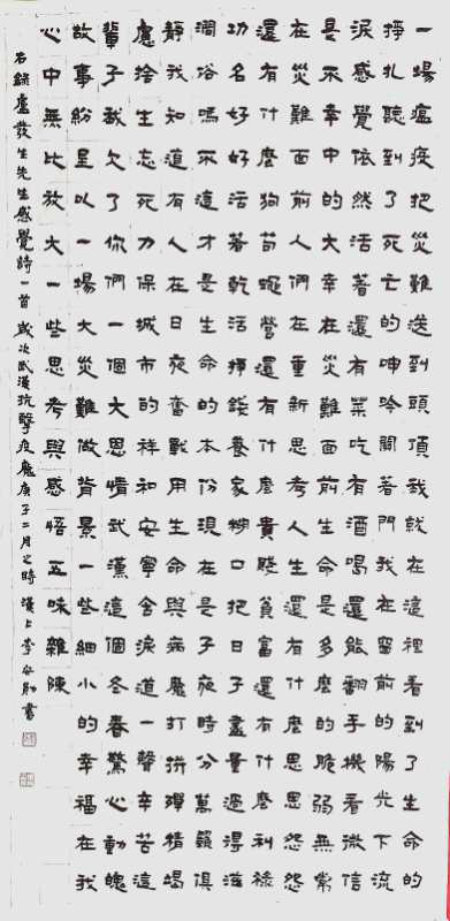 一場瘟疫把災難送到頭頂我就在這裡看到了生命的
掙扎聽到了死亡的呻吟關著門我在窗前的陽光下流
淚感覺依然活著還有菜吃有酒喝還能翻手機看微信
是不幸中的大幸在災難面前生命是多麼的脆弱無常
在災難面前人們在重新思考人生還有什麼恩恩怨怨
還有什麼狗苟蠅營還有什麼貴賤貧富還有什麼利祿
功名好好活著乾活掙錢養家糊口把日子盡量過得滋
潤俗嗎不這才是生命的本份現在是子夜時分萬籟俱
靜我知道有人在日夜奮戰用生命與病魔打拼殫精竭
慮捨生忘死力保城市的祥和安寧含淚道一聲辛苦這
輩子我欠了你們一個大恩情武漢這個冬春驚心動魄
故事紛呈以一場大災難做背景一些細小的幸福在我
心中無比放大一些思考與感悟五味雜陳
右錄盧發生先生感覺詩一首 歲次武漢抗擊疫魔庚子二月之時 漢上李書